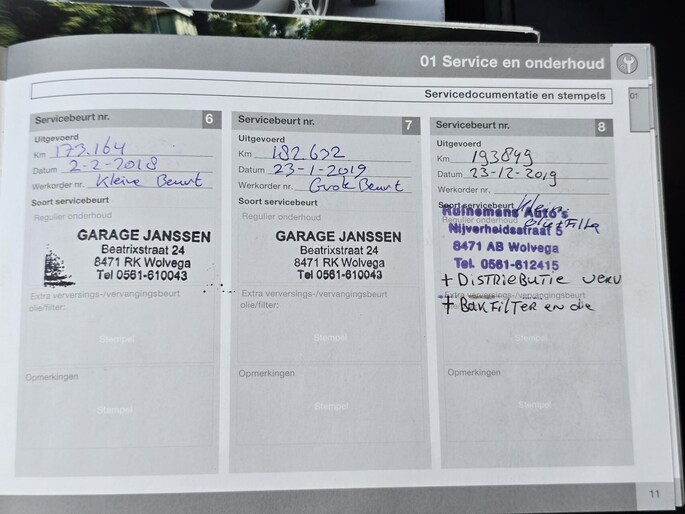 01 Service en onderhoud
Servicedocumentatie en stempels
01
Servicebeurt nr. 6
Uitgevoerd
Km 173.164
Datum 2-2-2018
Werkorder nr. Kleine Beurt
Soort servicebeurt
Regulier onderhoud
GARAGE JANSSEN
Beatrixstraat 24
8471 RK Wolvega
Tel 0561-610043
Extra verversings-/vervangingsbeurt
olie/filter:
Stempel
Opmerkingen
Stempel
Servicebeurt nr. 7
Uitgevoerd
Km 182.632
Datum 23-1-2019
Werkorder nr. Grote Beurt
Soort servicebeurt
Regulier onderhoud
GARAGE JANSSEN
Beatrixstraat 24
8471 RK Wolvega
Tel 0561-610043
Extra verversings-/vervangingsbeurt
olie/filter:
Stempel
Opmerkingen
Stempel
Servicebeurt nr. 8
Uitgevoerd
Km 193849
Datum 23-12-2019
Werkorder nr.
Soort servicebeurt
Regulier onderhoud
Ruinemans Auto's
Nijverheidsstraat 5
8471 AB Wolvega
Tel. 0561-612415
+ DISTRIBUTIE VERV
Extra verversings-/vervangingsbeurt
+ BAKFILTER en olie
Stempel
Opmerkingen
Stempel
11